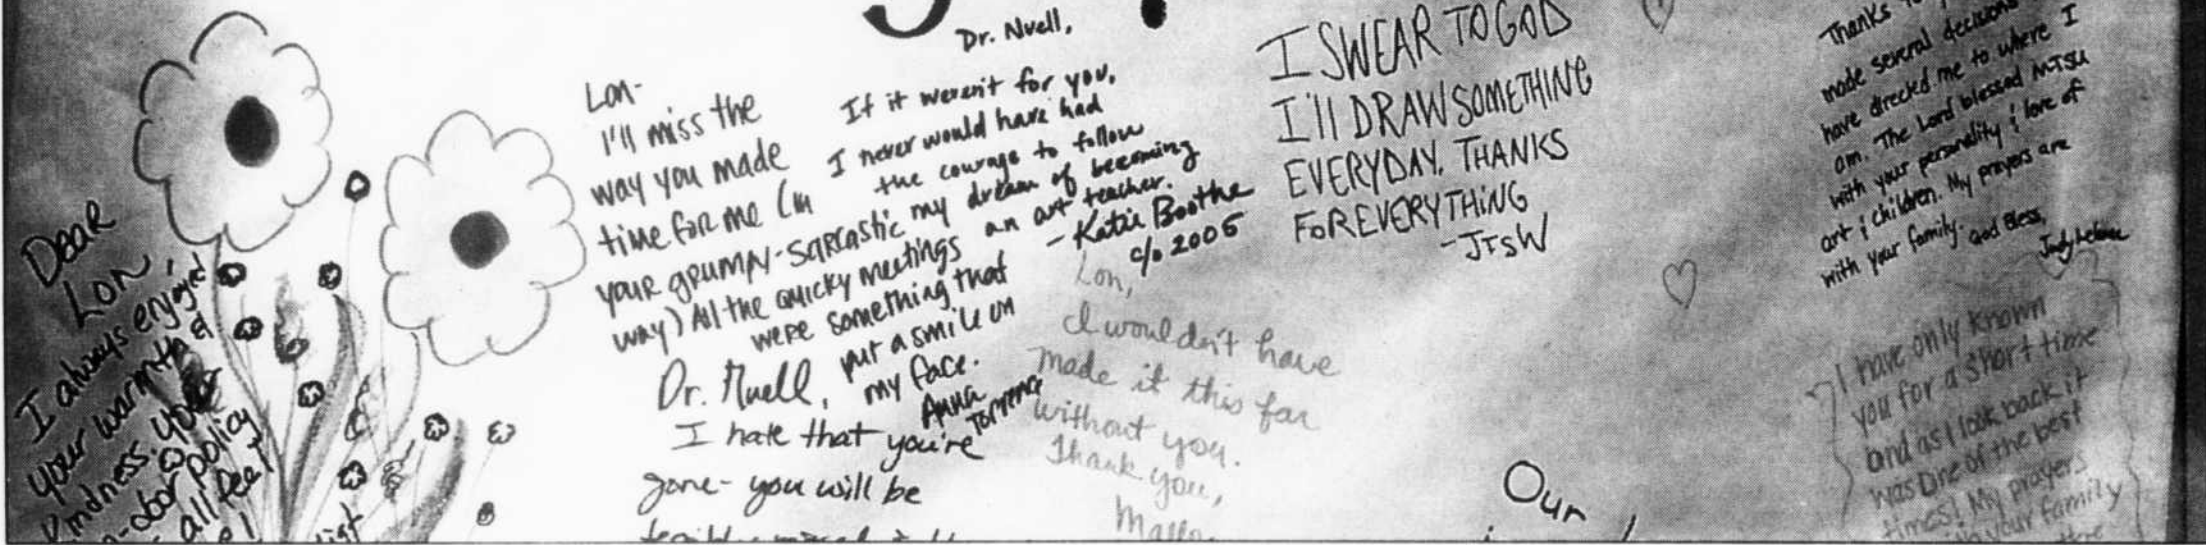 Dear
Lon,
I always enjoyed
your warmth &
kindness. Your
-door policy
all feel
Lon-
I'll miss the
way you made
time for me (in
your grumpy-sarcastic
way) All the quicky meetings
were something that
put a smile on
my face.
Anna
Torrence
Dr. Nuell,
If it weren't for you,
I never would have had
the courage to follow
my dream of becoming
an art teacher.
-Katie Boothe
c/o 2005
Dr. Nuell,
I hate that you're
gone- you will be
Lon,
I wouldn't have
made it this far
without you.
Thank you,
I SWEAR TO GOD
I'll DRAW SOMETHING
EVERYDAY. THANKS
FOR EVERYTHING
-JTSW
Our
Thanks
made several decisions
have directed me to where I
am. The Lord blessed MTSU
with your personality & love of
art & children. My prayers are
with your family. God Bless,
Judy
I have only known
you for a short time
and as I look back it
was one of the best
times! My prayers
your family